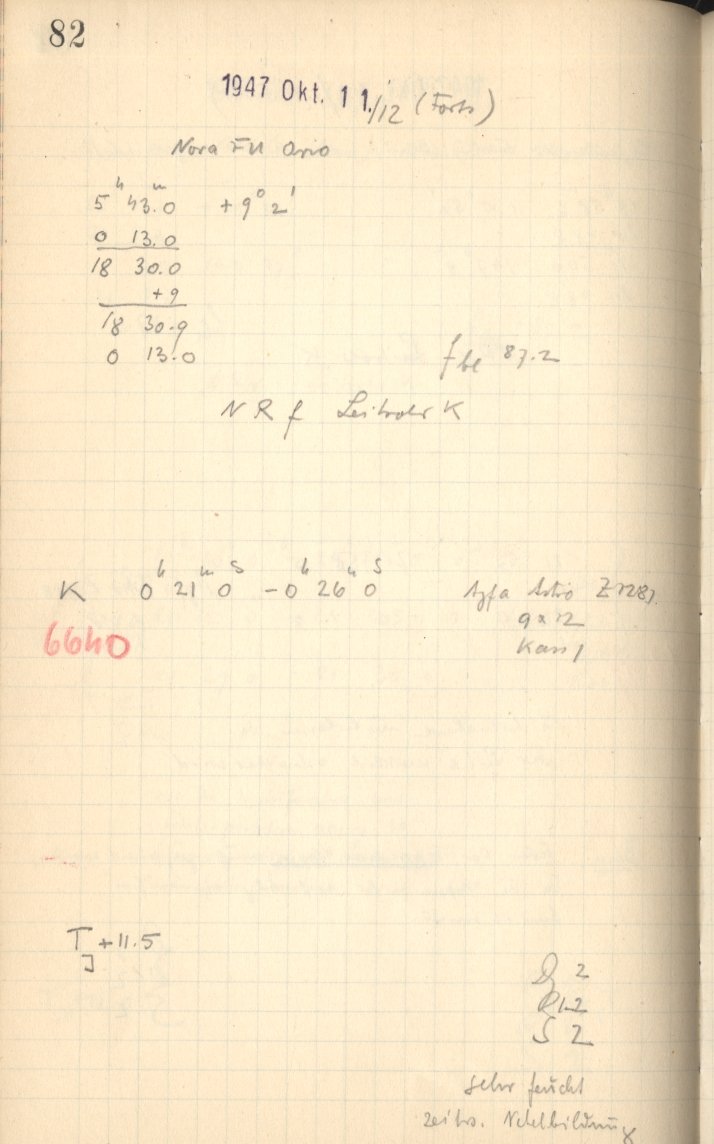 82
1947 Okt. 11./12 (Forts)
Nova FU Orio
5h 43m.0 +9° 2'
0 13.0
18 30.0
+9
18 30.9
0 13.0
f 87.2
N R f Leitrohr K
K 0h 21m 0s - 0h 26m 0s Agfa Astro
6640 9x12
Kass 1
T +11.5
J
2
R 1-2
S 2
sehr feucht
zeitw. Nebelbildung